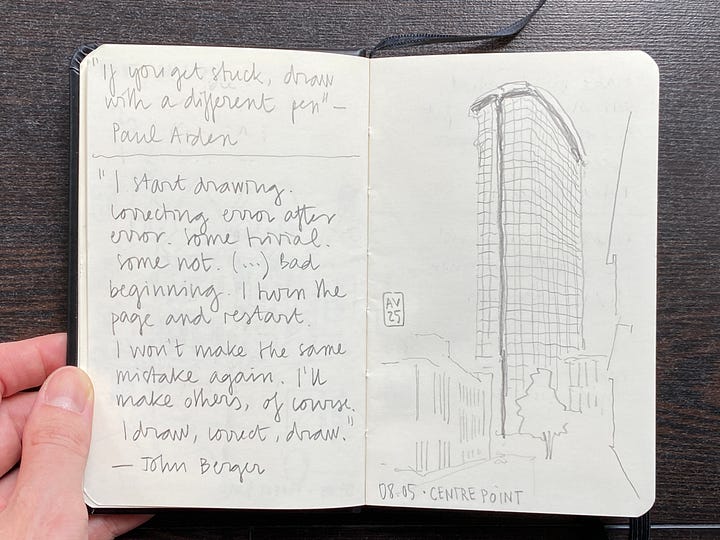 "If you get stuck, draw
with a different pen" —
Paul Arden
"I start drawing.
correcting error after
error. some trivial.
some not. (...) Bad
beginning. I turn the
page and restart.
I won't make the same
mistake again. I'll
make others, of course.
I draw, correct, draw."
— John Berger
AV
25
08.05 · CENTRE POINT